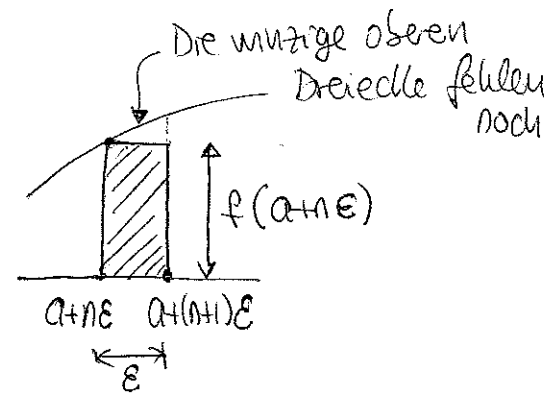 Die winzige oberen
Dreiecke fehlen
noch
f(a+nε)
a+nε a+(n+1)ε
ε